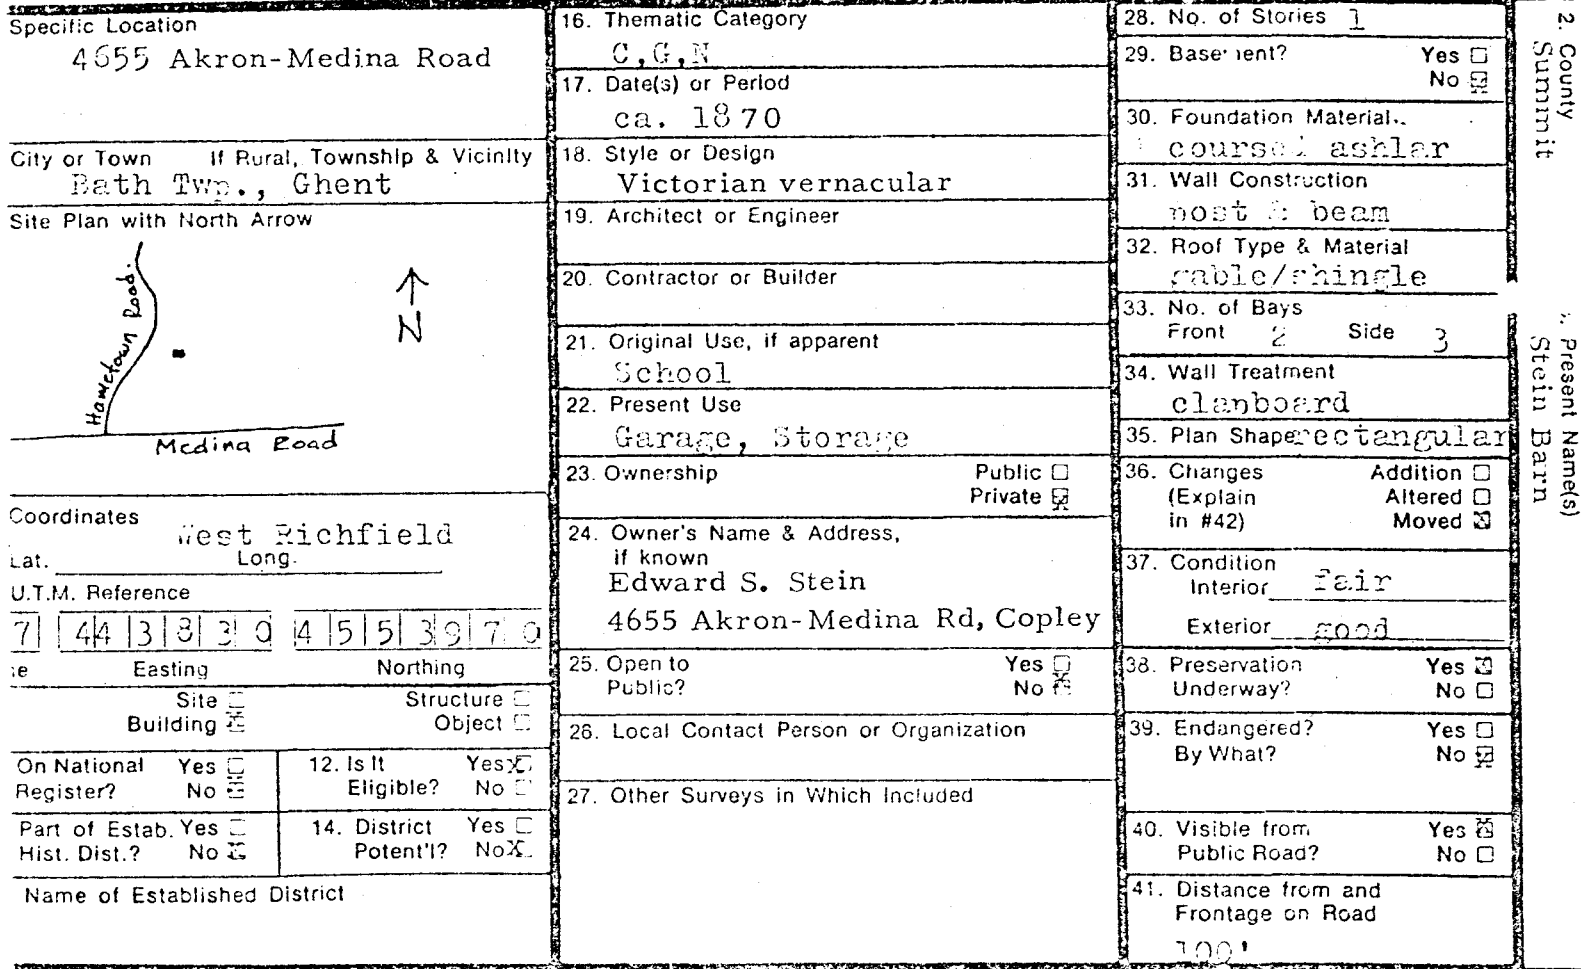 Specific Location
4655 Akron-Medina Road
City or Town If Rural, Township & Vicinity
Bath Twp., Ghent
Site Plan with North Arrow
Hametown Road.
N
Medina Road
Coordinates
West Richfield
Lat. Long.
U.T.M. Reference
7 4 4 3 8 3 0 4 5 5 3 9 7 0
Easting Northing
Site Structure
Building Object
On National Yes
Register? No
12. Is It Yes X
Eligible? No
Part of Estab. Yes
Hist. Dist.? No
14. District Yes
Potent'l? No X
Name of Established District
16. Thematic Category
C,G,N
17. Date(s) or Period
ca. 1870
18. Style or Design
Victorian vernacular
19. Architect or Engineer
20. Contractor or Builder
21. Original Use, if apparent
School
22. Present Use
Garage, Storage
23. Ownership Public
Private
24. Owner's Name & Address,
if known
Edward S. Stein
4655 Akron-Medina Rd, Copley
25. Open to Yes
Public? No
26. Local Contact Person or Organization
27. Other Surveys in Which Included
28. No. of Stories 1
29. Basement? Yes
No
30. Foundation Material
coursed ashlar
31. Wall Construction
post & beam
32. Roof Type & Material
gable/shingle
33. No. of Bays
Front 2 Side 3
34. Wall Treatment
clapboard
35. Plan Shape rectangular
36. Changes Addition
(Explain Altered
in #42) Moved
37. Condition
Interior fair
Exterior good
38. Preservation Yes
Underway? No
39. Endangered? Yes
By What? No
40. Visible from Yes
Public Road? No
41. Distance from and
Frontage on Road
100'
2. County
Summit
Present Name(s)
Stein Barn